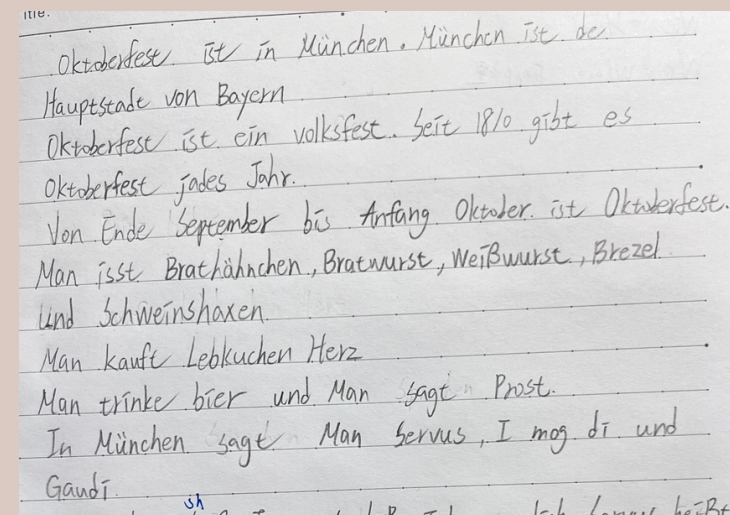 Oktoberfest ist in München. München ist de
Hauptstadt von Bayern
Oktoberfest ist ein volksfest. Seit 1810 gibt es
Oktoberfest jades Jahr.
Von Ende September bis Anfang Oktober ist Oktoberfest.
Man isst Brathähnchen, Bratwurst, Weißwurst, Brezel
Und Schweinshaxen
Man kauft Lebkuchen Herz
Man trinke bier und Man sagt Prost.
In München sagt Man Servus, I mog di und
Gaudi.